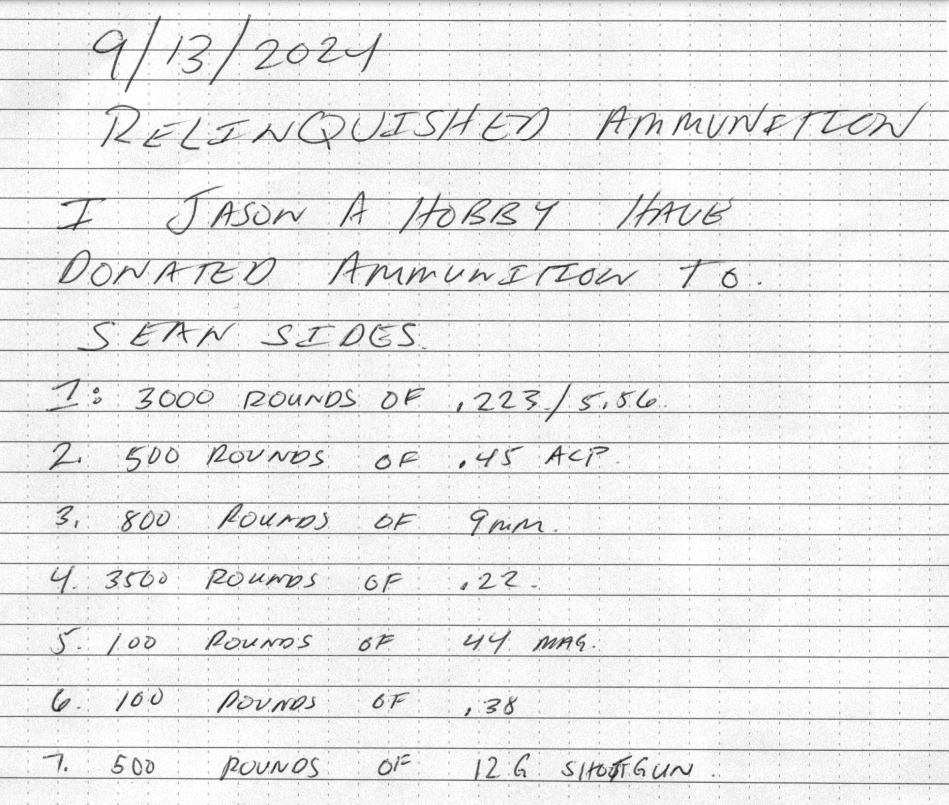 9/13/2024
RELINQUISHED AMMUNITION
I JASON A HOBBY HAVE
DONATED AMMUNITION TO.
SEAN SIDES.
1: 3000 ROUNDS OF .223/5.56.
2. 500 ROUNDS OF .45 ACP.
3. 800 ROUNDS OF 9mm.
4. 3500 ROUNDS OF .22.
5. 100 ROUNDS OF 44 MAG.
6. 100 ROUNDS OF .38
7. 500 ROUNDS OF 12 G SHOTGUN.